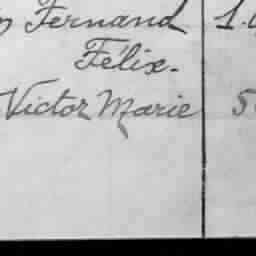 Fernand
Félix.
Victor Marie 5